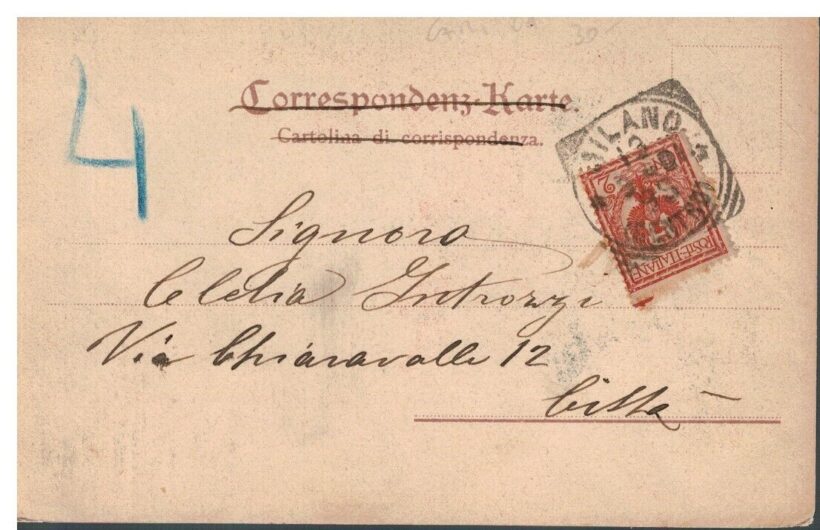 4
Correspondenz-Karte.
Cartolina di corrispondenza.
MILANO
2
POSTE-ITALIANE
Signora
Clelia Introzzi
Via Chiaravalle 12
Città